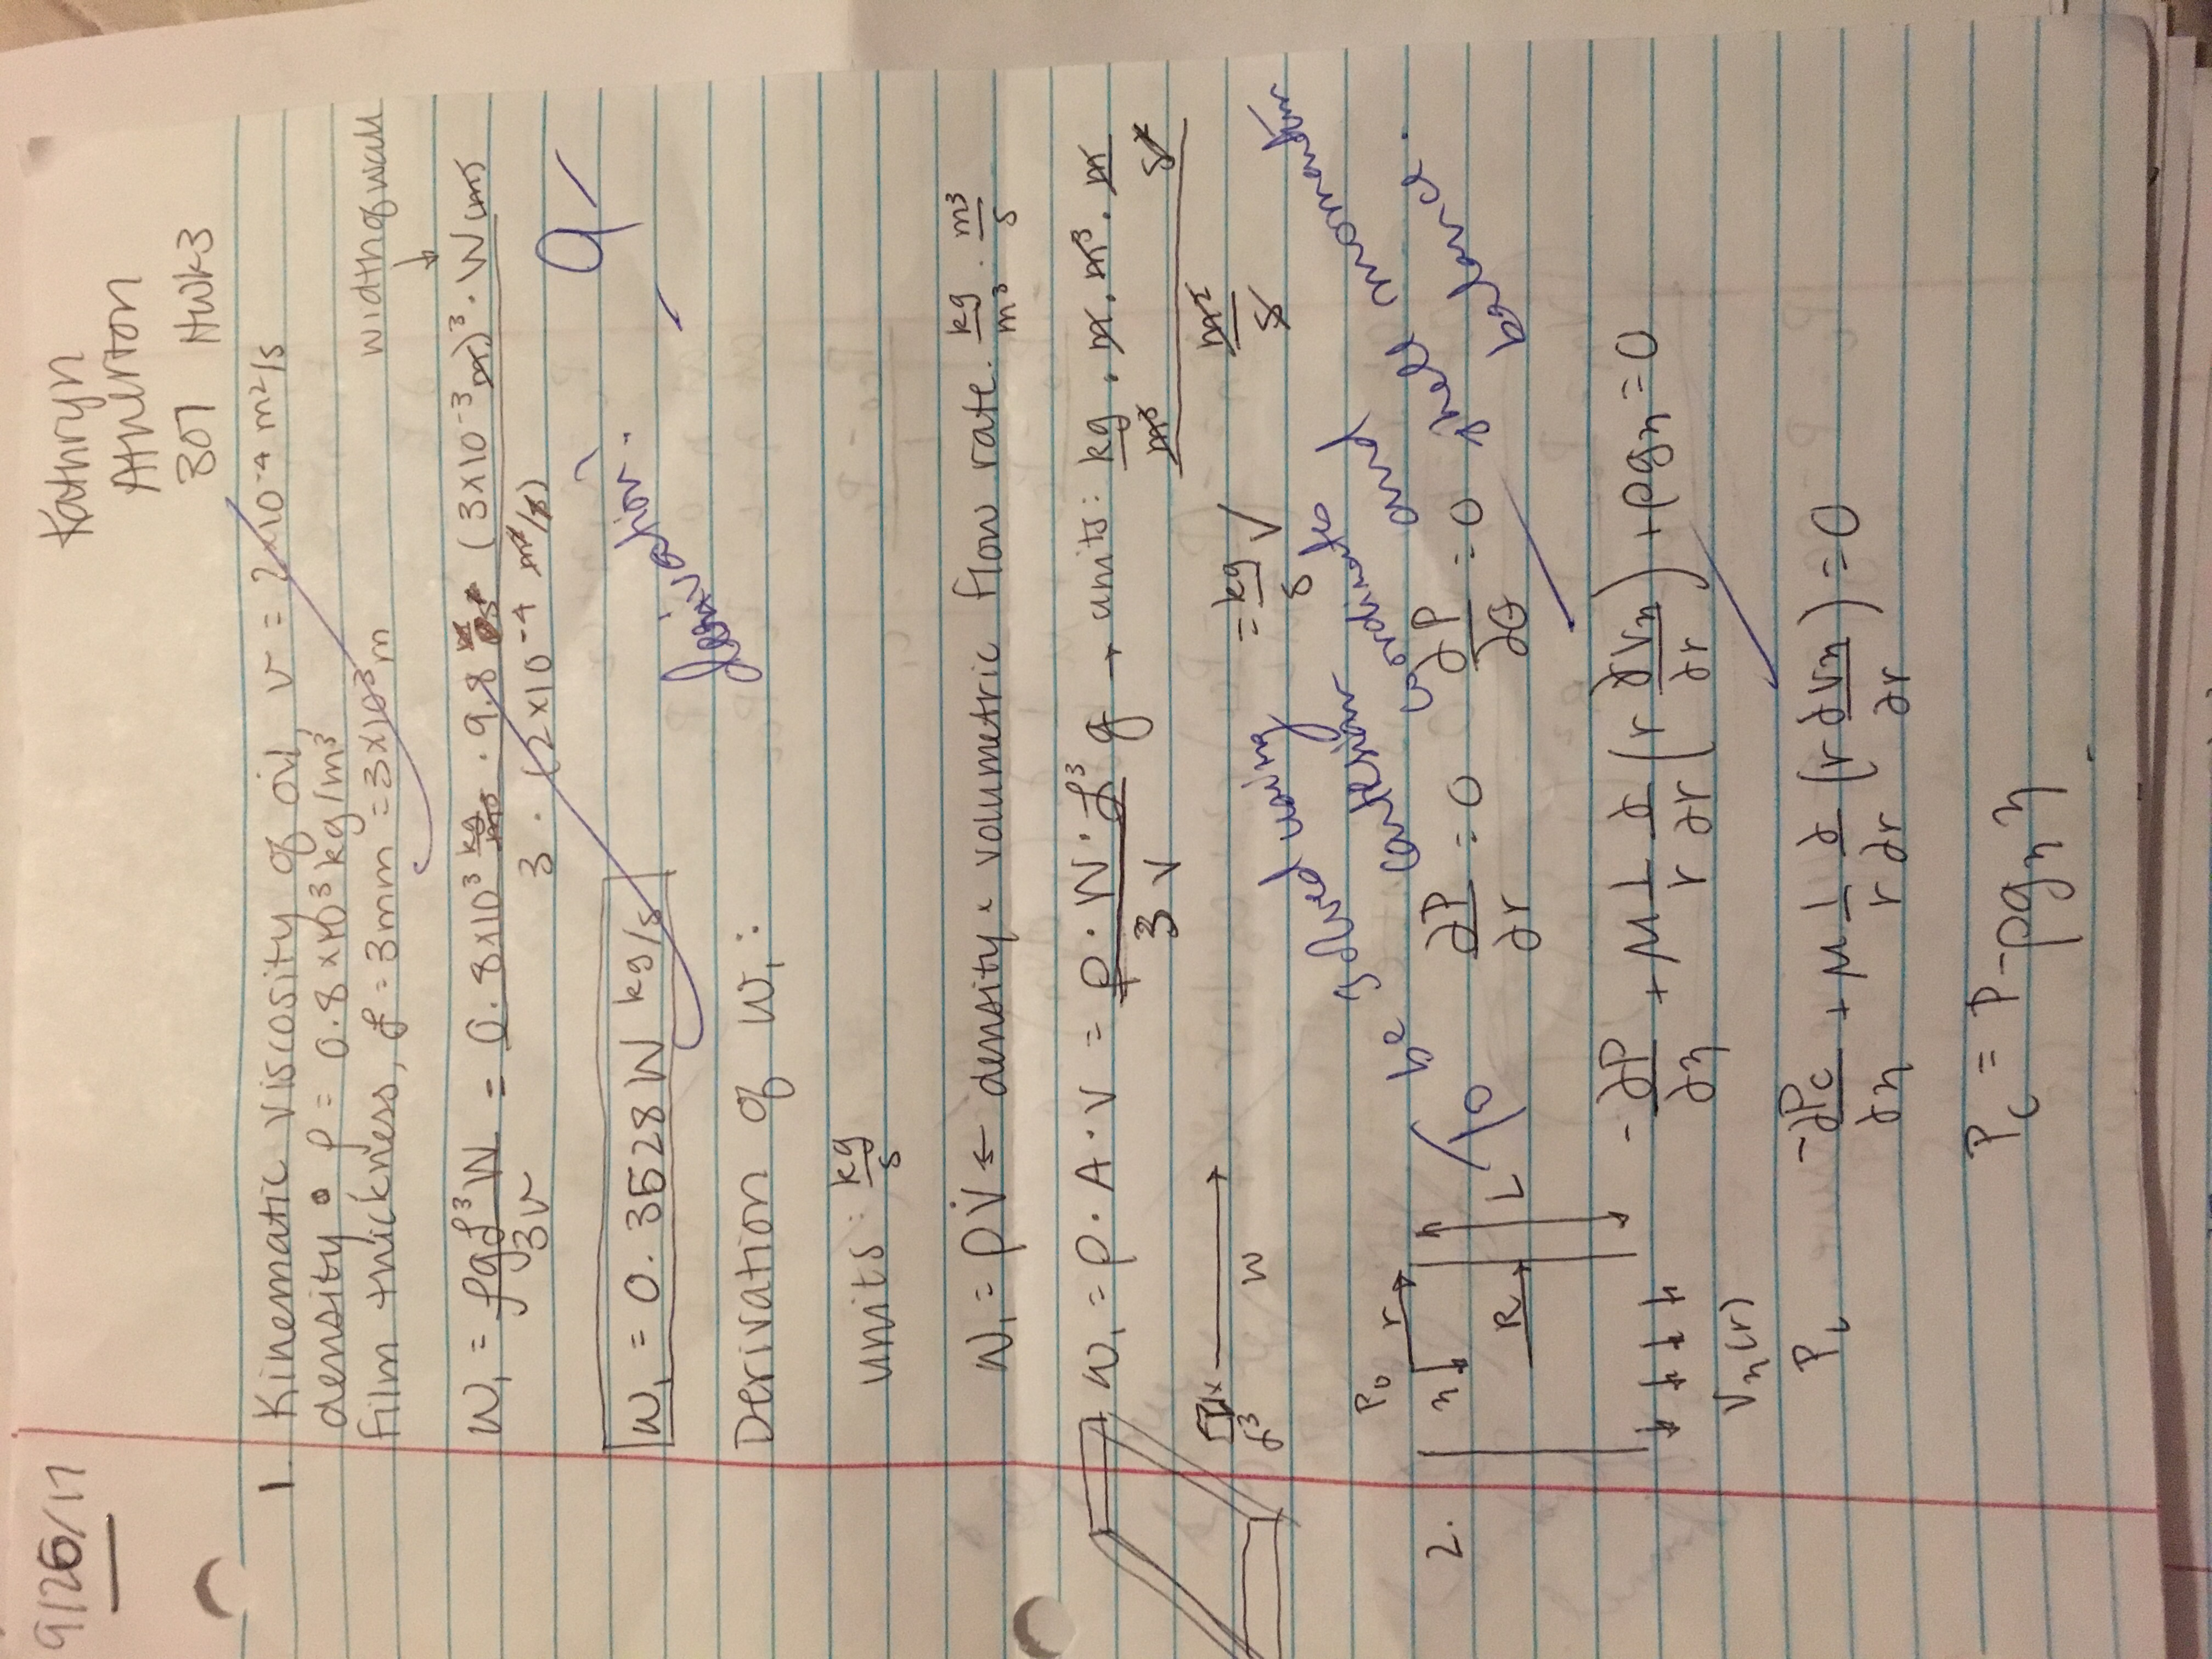 9/26/17
Kathryn
Atherton
307 HWK3
1. Kinematic viscosity of oil, ν = 2×10⁻⁴ m²/s
density, ρ = 0.8×10³ kg/m³
film thickness, δ = 3mm = 3×10³ m
width of wall
↓
w₁ = ρgδ³W / 3ν = 0.8×10³ kg/m³ · 9.8 m/s² (3×10⁻³ m)³ · W(m) / 3 · (2×10⁻⁴ m²/s)
9
w₁ = 0.3528 W kg/s
derivation?
Derivation of w₁:
units: kg/s
w₁ = ρV̇ ← density × volumetric flow rate. kg/m³ · m³/s
w₁ = ρ·A·V = ρ·W·δ³ g / 3ν → units: kg/m³ · m · m³ · m/s² / m²/s
= kg/s ✓
δ³ x → W
To be solved using
cartesian
coordinates
and
shell momentum
balance.
2. P₀ r z R L
∂P/∂r = 0 ∂P/∂θ = 0
-∂P/∂z + μ 1/r ∂/∂r (r ∂Vz/∂r) + ρgz = 0
Vz(r)
P_L
-∂Pc/∂z + μ 1/r ∂/∂r (r ∂Vz/∂r) = 0
Pc = P - ρgz z